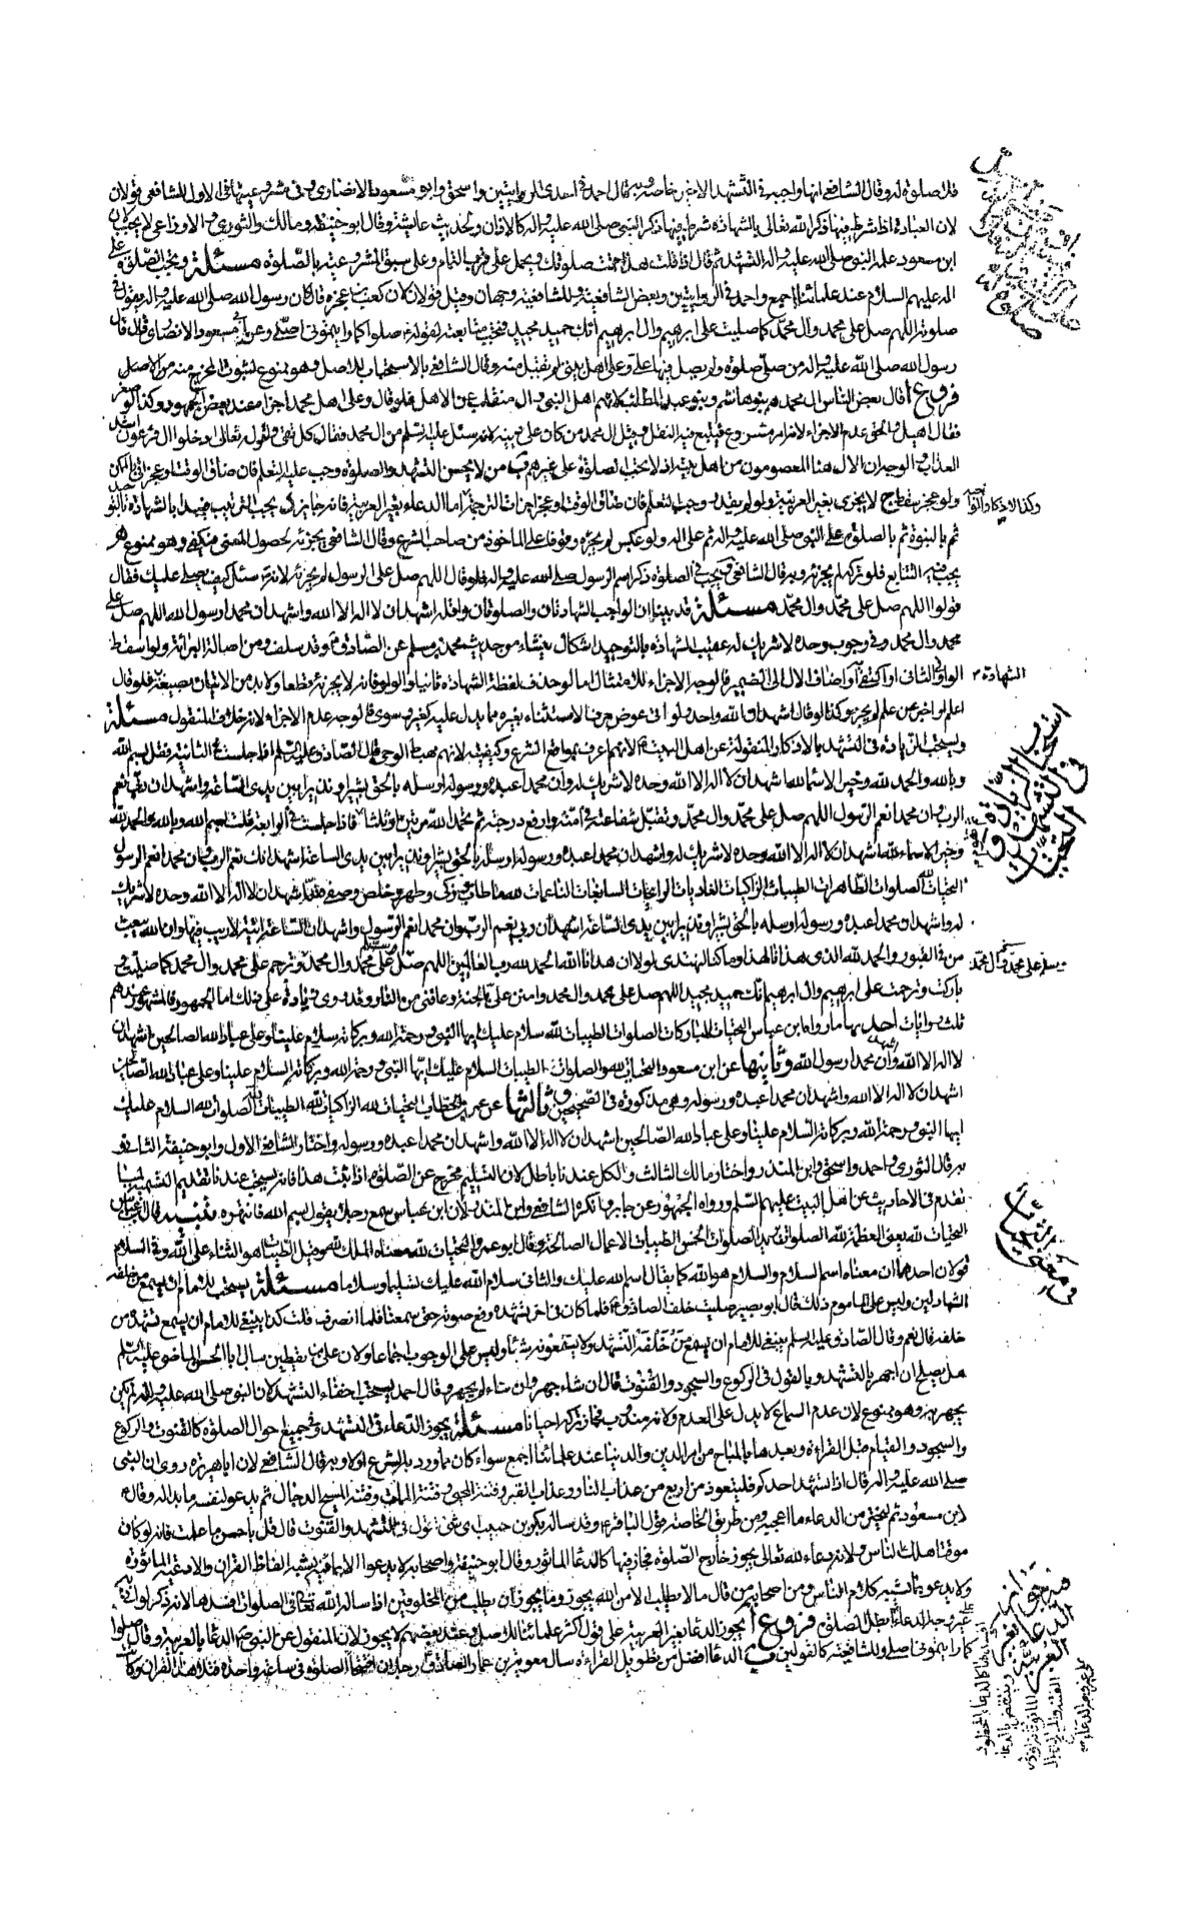 فلا صلوة له وقال الشافعي انها واجبة في التشهد الاخير خاصة وبه قال احمد في احدى الروايتين واسحق وابو مسعود الانصاري وفي مشروعيتها في الاول للشافعي قولان
لان العبادة اذا شرط فيها ذكر الله تعالى بالشهادة شرط فيها ذكر النبي صلى الله عليه واله كالاذان ولحديث عايشة وقال ابو حنيفة ومالك والثوري والاوزاعي لا يجب لان
ابن مسعود علمه النبي صلى الله عليه واله التشهد ثم قال اذا قلت هذا تمت صلوتك ويحمل على قرب التمام وعلى سبقه المشروعية بالصلوة مسئلة وتجب الصلوة على
اله عليهم السلام عند علمائنا اجمع واحمد في الروايتين وبعض الشافعية وللشافعية وجهان وقيل قولان لان كعب بن عجرة قال كان رسول الله صلى الله عليه واله يقول في
صلوته اللهم صل على محمد وال محمد كما صليت على ابراهيم وال ابراهيم انك حميد مجيد فتجب متابعته لقوله صلوا كما رايتموني اصلي وعن ابي مسعود الانصاري قال قال
رسول الله صلى الله عليه واله من صلى صلوة ولم يصل فيها علي وعلى اهل بيتي لم تقبل منه وقال الشافعي بالاستحباب للاصل وهو ممنوع لثبوت المخرج منه من الاصل
فروع ا قال بعض الناس ال محمد هم بنو هاشم وبنو عبد المطلب لانهم اهل النبي وال منقلب عن الاهل فلو قال وعلى اهل محمد اجزأ عند بعض الجمهور وكذا لو صغر
فقال اهيل والحق عدم الاجزاء لانه امر مشروع فيتبع فيه النقل وقيل ال محمد من كان على دينه لانه سئل عليه السلم من ال محمد فقال كل تقي ولقوله تعالى ادخلوا ال فرعون اشد
العذاب والوجه ان الال هنا المعصومون من اهل بيته اذ لا تجب الصلوة على غيرهم ب من لا يحسن التشهد والصلوة وجب عليه التعلم فان ضاق الوقت او عجز اتى بالممكن
ولو عجز سقط ج لا يجزي بغير العربية ولو لم يقدر وجب التعلم فان ضاق الوقت او عجز اجزأت الترجمة اما الدعاء بغير العربية فانه جايز د يجب الترتيب فيبدأ بالشهادة بالتوحيد
ثم بالنبوة ثم بالصلوة على النبي صلى الله عليه واله ثم على اله ولو عكس لم يجزه وقوفا على الماخوذ من صاحب الشرع وقال الشافعي يجزئه لحصول المعنى فيكفي وهو ممنوع هـ
يجب فيه التتابع فلو تركه لم يجزئه وبه قال الشافعي و يجب في الصلوة ذكر اسم الرسول صلى الله عليه واله فلو قال اللهم صل على الرسول لم يجزئه لانه سئل كيف نصلي عليك فقال
قولوا اللهم صل على محمد وال محمد مسئلة قد بينا ان الواجب الشهادتان والصلوتان واقله اشهد ان لا اله الا الله واشهد ان محمدا رسول الله اللهم صل على
محمد وال محمد وفي وجوب وحده لا شريك له عقيب الشهادة بالتوحيد اشكال ينشأ من حديث محمد بن مسلم عن الصادق وقد سلف ومن اصالة البرائة ولو اسقط
الواو في الثاني او اكتفى به او اضاف الال الى المضمر فالوجه الاجزاء للامتثال اما لو حذف لفظة الشهادة ثانيا والواو فانه لا يجزئه قطعا ولا بد من الاتيان بصيغته فلو قال
اعلم او اخبر عن علم لم يجز وكذا لو قال اشهد ان الله واحد ولو اتى عوض حرف الاستثناء بغيره مما يدل عليه كغير وسوى فالوجه عدم الاجزاء لانه خلاف المنقول مسئلة
ويستحب الزيادة في التشهد بالاذكار المنقولة عن اهل البيت لانهم اعرف بمواضع الشرع وكيفيته لانهم مهبط الوحي قال الصادق عليه السلم اذا جلست في الثانية فقل بسم الله
وبالله والحمد لله وخير الاسماء لله اشهد ان لا اله الا الله وحده لا شريك له وان محمدا عبده ورسوله ارسله بالحق بشيرا ونذيرا بين يدي الساعة واشهد ان ربي نعم
الرب وان محمدا نعم الرسول اللهم صل على محمد وال محمد وتقبل شفاعته في امته وارفع درجته ثم تحمد الله مرتين او ثلثا فاذا جلست في الرابعة قلت بسم الله وبالله والحمد لله
وخير الاسماء لله اشهد ان لا اله الا الله وحده لا شريك له واشهد ان محمدا عبده ورسوله ارسله بالحق بشيرا ونذيرا بين يدي الساعة اشهد انك نعم الرب وان محمدا نعم الرسول
التحيات لله الصلوات الطاهرات الطيبات الزاكيات الغاديات الرائحات السابغات الناعمات لله ما طاب وزكى وطهر وخلص وصفى فلله اشهد ان لا اله الا الله وحده لا شريك
له واشهد ان محمدا عبده ورسوله ارسله بالحق بشيرا ونذيرا بين يدي الساعة اشهد ان ربي نعم الرب وان محمدا نعم الرسول واشهد ان الساعة اتية لا ريب فيها وان الله يبعث
من في القبور والحمد لله الذي هدانا لهذا وما كنا لنهتدي لولا ان هدانا الله الحمد لله رب العالمين اللهم صل على محمد وال محمد وترحم على محمد وال محمد كما صليت و
باركت وترحمت على ابراهيم وال ابراهيم انك حميد مجيد اللهم صل على محمد وال محمد وامنن علي بالجنة وعافني من النار وقد روى زيادة على ذلك اما الجمهور فالمشهور عندهم
ثلث روايات احديها ما رواه ابن عباس التحيات المباركات الصلوات الطيبات لله سلام عليك ايها النبي ورحمة الله وبركاته سلام علينا وعلى عباد الله الصالحين اشهد ان
لا اله الا الله واشهد ان محمد رسول الله وثانيها عن ابن مسعود التحيات لله والصلوات الطيبات السلام عليك ايها النبي ورحمة الله وبركاته السلام علينا وعلى عباد الله الصالحين
اشهد ان لا اله الا الله واشهد ان محمدا عبده ورسوله وهي مذكورة في الصحيحين وثالثها عن عمر بن الخطاب التحيات لله الزاكيات لله الطيبات الصلوات لله السلام عليك
ايها النبي ورحمة الله وبركاته السلام علينا وعلى عباد الله الصالحين اشهد ان لا اله الا الله واشهد ان محمدا عبده ورسوله واختار الشافعي الاول وابو حنيفة الثاني و
به قال الثوري واحمد واسحق وابن المنذر واختار مالك الثالث والكل عندنا باطل لان التسليم مخرج عن الصلوة اذا ثبت هذا فانه يستحب عندنا تقديم التسمية لما
تقدم في الاحاديث عن اهل البيت عليهم السلم ورواه الجمهور عن جابر وانكره الشافعي وابن المنذر لان ابن عباس سمع رجلا يقول بسم الله فانتهره تنبيه قال ابن عباس
التحيات لله يعني العظمة لله الصلوات لله الصلوات الخمس الطيبات الاعمال الصالحة وقال ابو عمر والتحيات لله معناه الملك لله وقيل الطيبات هو الثناء على الله وفي السلام
قولان احدهما ان معناه اسم السلام والسلام هو الله كما يقال اسم الله عليك والثاني سلام الله عليك تسليما وسلاما مسئلة يستحب للامام ان يسمع من خلفه
الشهادتين وليس على الماموم ذلك قال ابو بصير صليت خلف الصادق فلما كان في اخر تشهده رفع صوته حتى سمعنا فلما انصرف قلت كذا ينبغي للامام ان يسمع تشهده من
خلفه قال نعم وقال الصادق عليه السلم ينبغي للامام ان يسمع من خلفه التشهد ولا يسمعونه شيئا وليس على الوجوب اجماعا ولان علي بن يقطين سال ابا الحسن الماضي عليه السلم
هل يصلح ان اجهر بالتشهد وبالقول في الركوع والسجود والقنوت قال ان شاء جهر وان شاء لم يجهر وقال احمد يستحب اخفاء التشهد لان النبي صلى الله عليه واله لم يكن
يجهر به وهو ممنوع لان عدم السماع لا يدل على العدم ولانه مندوب فجاز تركه احيانا مسئلة يجوز الدعاء في التشهد وفي جميع احوال الصلوة كالقنوت والركوع
والسجود والقيام قبل القراءة وبعدها بالمباح من امر الدين والدنيا عند علمائنا اجمع سواء كان مما ورد به الشرع او لا وبه قال الشافعي لان ابا هريرة روى ان النبي
صلى الله عليه واله قال اذا تشهد احدكم فليتعوذ من اربع من عذاب النار وعذاب القبر وفتنة المحيا وفتنة الممات وفتنة المسيح الدجال ثم يدعو لنفسه ما بدا له وقال
لابن مسعود ثم ليختر من الدعاء ما اعجبه ومن طريق الخاصة قول الباقر وقد ساله بكر بن حبيب اي شيء نقول في التشهد والقنوت قال قل باحسن ما علمت فانه لو كان
موقتا هلك الناس ولانه دعاء لله تعالى يجوز خارج الصلوة فجاز فيها كالدعا الماثور وقال ابو حنيفة واصحابه لا يدعو الا بما يشبه الفاظ القران والادعية الماثورة
ولا يدعو بما يشبه كلام الناس ومن اصحابه من قال ما لا يطلب الا من الله يجوز وما يجوز ان يطلب من المخلوقين اذا ساله الله تعالى في الصلوات افسدها لانه
فروع ا يجوز الدعا بغير العربية على قول اكثر علمائنا للاصل وعند بعضهم لا يجوز لان المنقول عن النبي الدعا بالعربية وقال صلوا
كما رايتموني اصلي وللشافعية كالقولين ب الدعا افضل من تطويل القراءة سال معوية بن عمار الصادق رجلان افتتحا الصلوة في ساعة واحدة فتلا هذا القران وكانت
وكذا الاذكار الواجبة
الشهادة
استحباب الزيادة في التشهد
ومعنى التحيات
في جواز الدعا بغير العربية